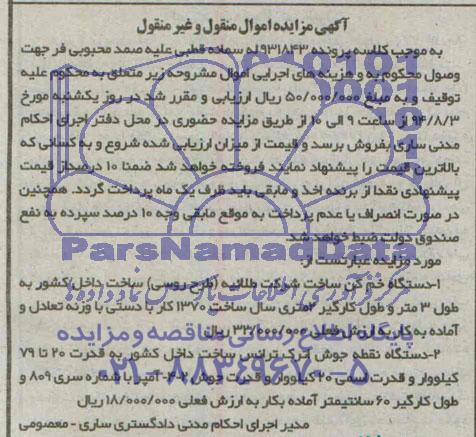 آگهی مزایده اموال منقول و غیر منقول
به موجب کلاسه پرونده ۹۳۱۸۴۳ له سمانه قطبی علیه صمد محبوبی فر جهت
وصول محکوم به و هزینه های اجرایی اموال مشروحه زیر متعلق به محکوم علیه
توقیف و به مبلغ ۵۰/۰۰۰/۰۰۰ ریال ارزیابی و مقرر شد در روز یکشنبه مورخ
۹۴/۸/۳ از ساعت ۹ الی ۱۰ از طریق مزایده حضوری در محل دفتر اجرای احکام
مدنی ساری بفروش برسد و قیمت از میزان ارزیابی شده شروع و به کسانی که
بالاترین قیمت را پیشنهاد نمایند فروخته خواهد شد ضمنا ۱۰ درصد از قیمت
پیشنهادی نقدا از برنده اخذ و مابقی باید ظرف یک ماه پرداخت گردد. همچنین
در صورت انصراف یا عدم پرداخت به موقع مابقی وجه ۱۰ درصد سپرده به نفع
صندوق دولت ضبط خواهد شد.
ParsNamadData
مورد مزایده عبارتست از:
۱-دستگاه خم کن ساخت شرکت طلائیه (طرح روسی) ساخت داخل کشور به
طول ۳ متر و طول کارگیر ۲متری سال ساخت ۱۳۷۰ کار با دستی با وزنه تعادل و
آماده به کار به ارزش فعلی ۳۲/۰۰۰/۰۰۰ ریال
پایگاه اطلاع رسانی مناقصه و مزایده
۲-دستگاه نقطه جوش مرک ترانس ساخت داخل کشور به قدرت ۲۰ تا ۷۹
کیلووار و قدرت اسمی ۲۰ کیلووار و قدرت جوش آمپر با شماره سری ۸۰۹ و
۰۲۱-۸۸۳۴۹۶۷۰-۵
طول کارگیر ۶۰ سانتیمتر آماده بکار به ارزش فعلی ۱۸/۰۰۰/۰۰۰ ریال
مدیر اجرای احکام مدنی دادگستری ساری - معصومی